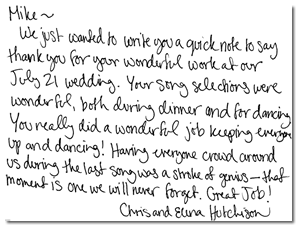 Mike ~
We just wanted to write you a quick note to say
thank you for your wonderful work at our
July 21 wedding. Your song selections were
wonderful, both during dinner and for dancing
You really did a wonderful job keeping everyone
up and dancing! Having everyone crowd around
us during the last song was a stroke of genius — that
moment is one we will never forget. Great Job!
Chris and Hutchison